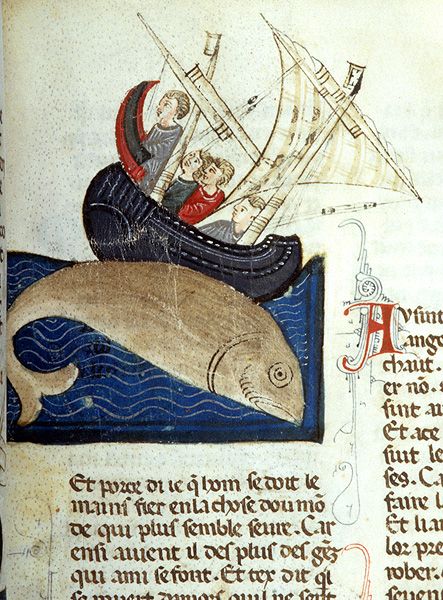 Et porce di ie q̃ hom se doit le
mains fier en la chose dou mõ
de qui plus semble seure. Car
ensi auient il des plus des gẽz
qui ami se font. Et tex dit ql̃
se muert damors qui ne sent
Ausint
ange
chaut.
er nõ.
sint au
Et ace
suit le
ses. Ca
faire l
Et li a
lor pre
rober.
seuent